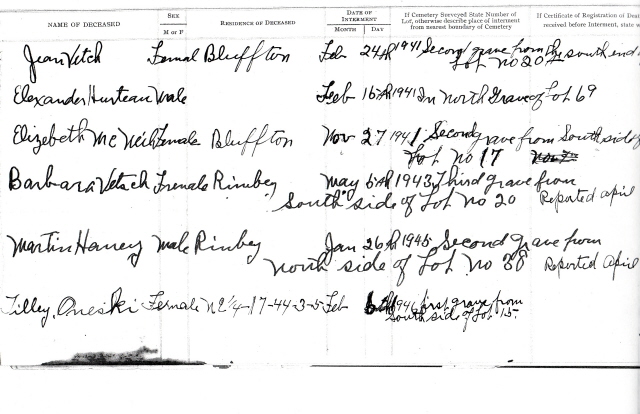 NAME OF DECEASED SEX M or F RESIDENCE OF DECEASED DATE OF INTERMENT MONTH DAY If Cemetery Surveyed State Number of Lot, otherwise describe place of interment from nearest boundary of Cemetery If Certificate of Registration of De received before Interment, state w
Jean Vetch Femal Bluffton Feb 24th 1941 Second grave from the south end
Lot No 20
Elexander Hunteau Male Feb 16th 1941 In North Grave of Lot 69
Elizabeth Mc Neil Female Bluffton Nov 27 1941 Second grave from South side of
Lot No 17
Barbara Vetsch Female Rimbey May 6th 1943 Third grave from
South side of Lot No 20 Reported April
Martin Haney Male Rimbey Jan 26th 1945 Second grave from
North side of Lot No 38 Reported April
Tilley Oneski Female N E 1/4-17-44-3-5 Feb 6th 1946 first grave from
South side of Lot 15.